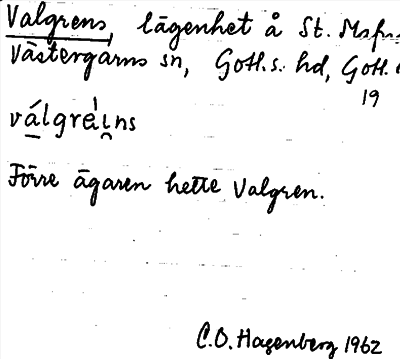 Valgrens, lägenhet å St. Mafr
Västergarns sn, Gotl. s. hd, Gotl.
19
válgrei̯ns
Förre ägaren hette Valgren.
C.O. Hagenberg 1962